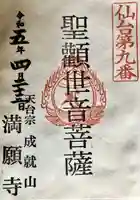 仙台第九番
聖観世音菩薩
令和五年四月二十三日
天台宗 成就山
満願寺